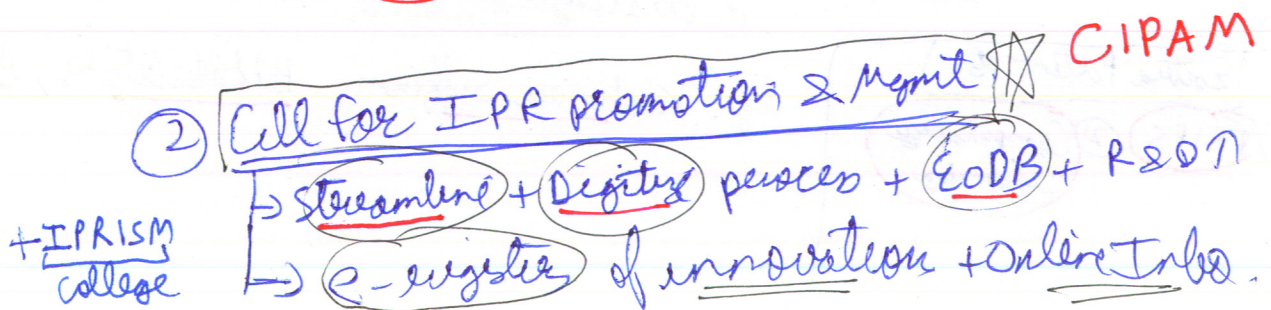 CIPAM
② Cell for IPR promotion & Mgmt
→ Streamline + Digitize process + EoDB + R&D↑
+ IPRISM
college
→ e-register of innovation + Online Info.